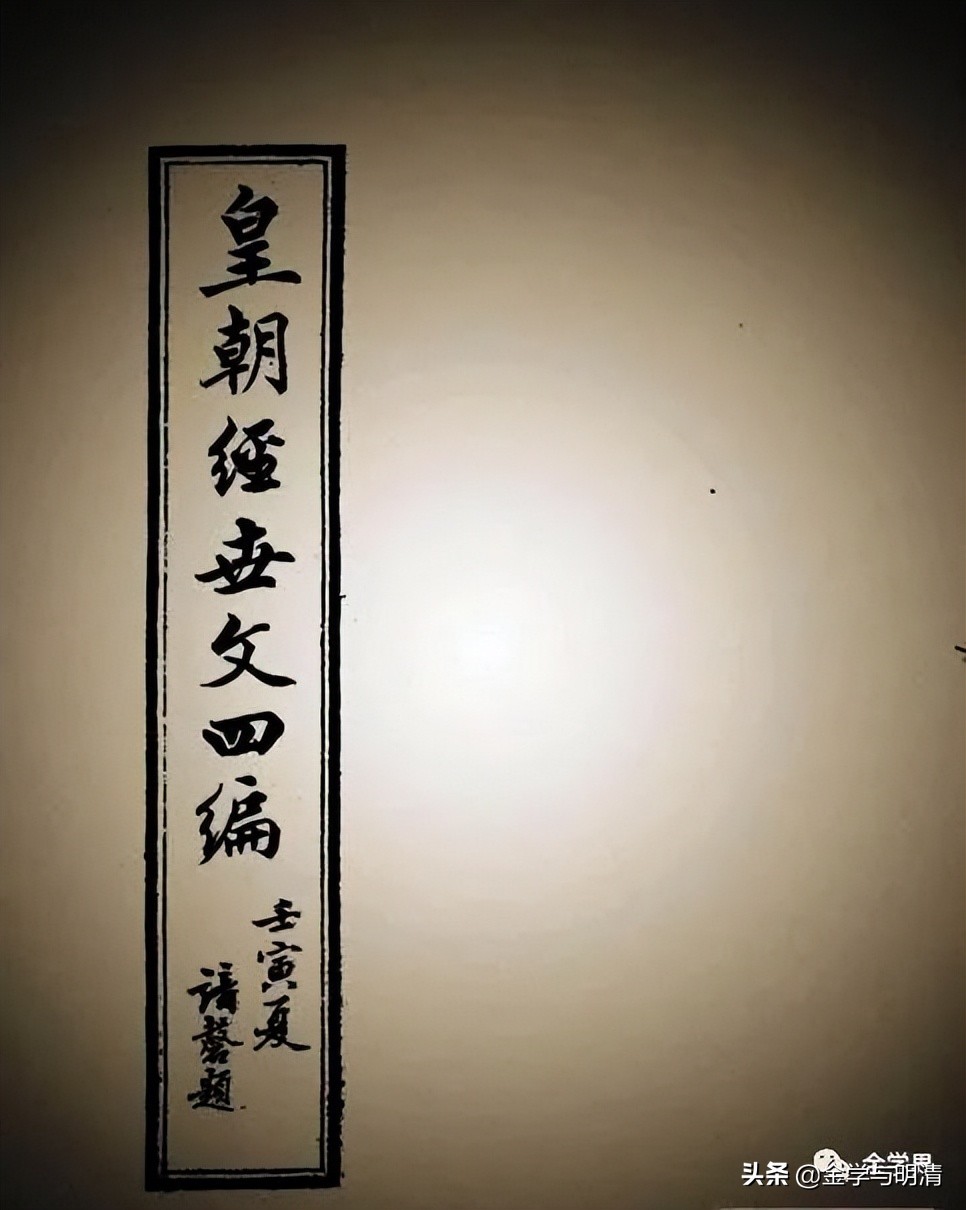 皇朝經世文四編
壬寅夏
諳磬題
金学界
头条 @金学与明清